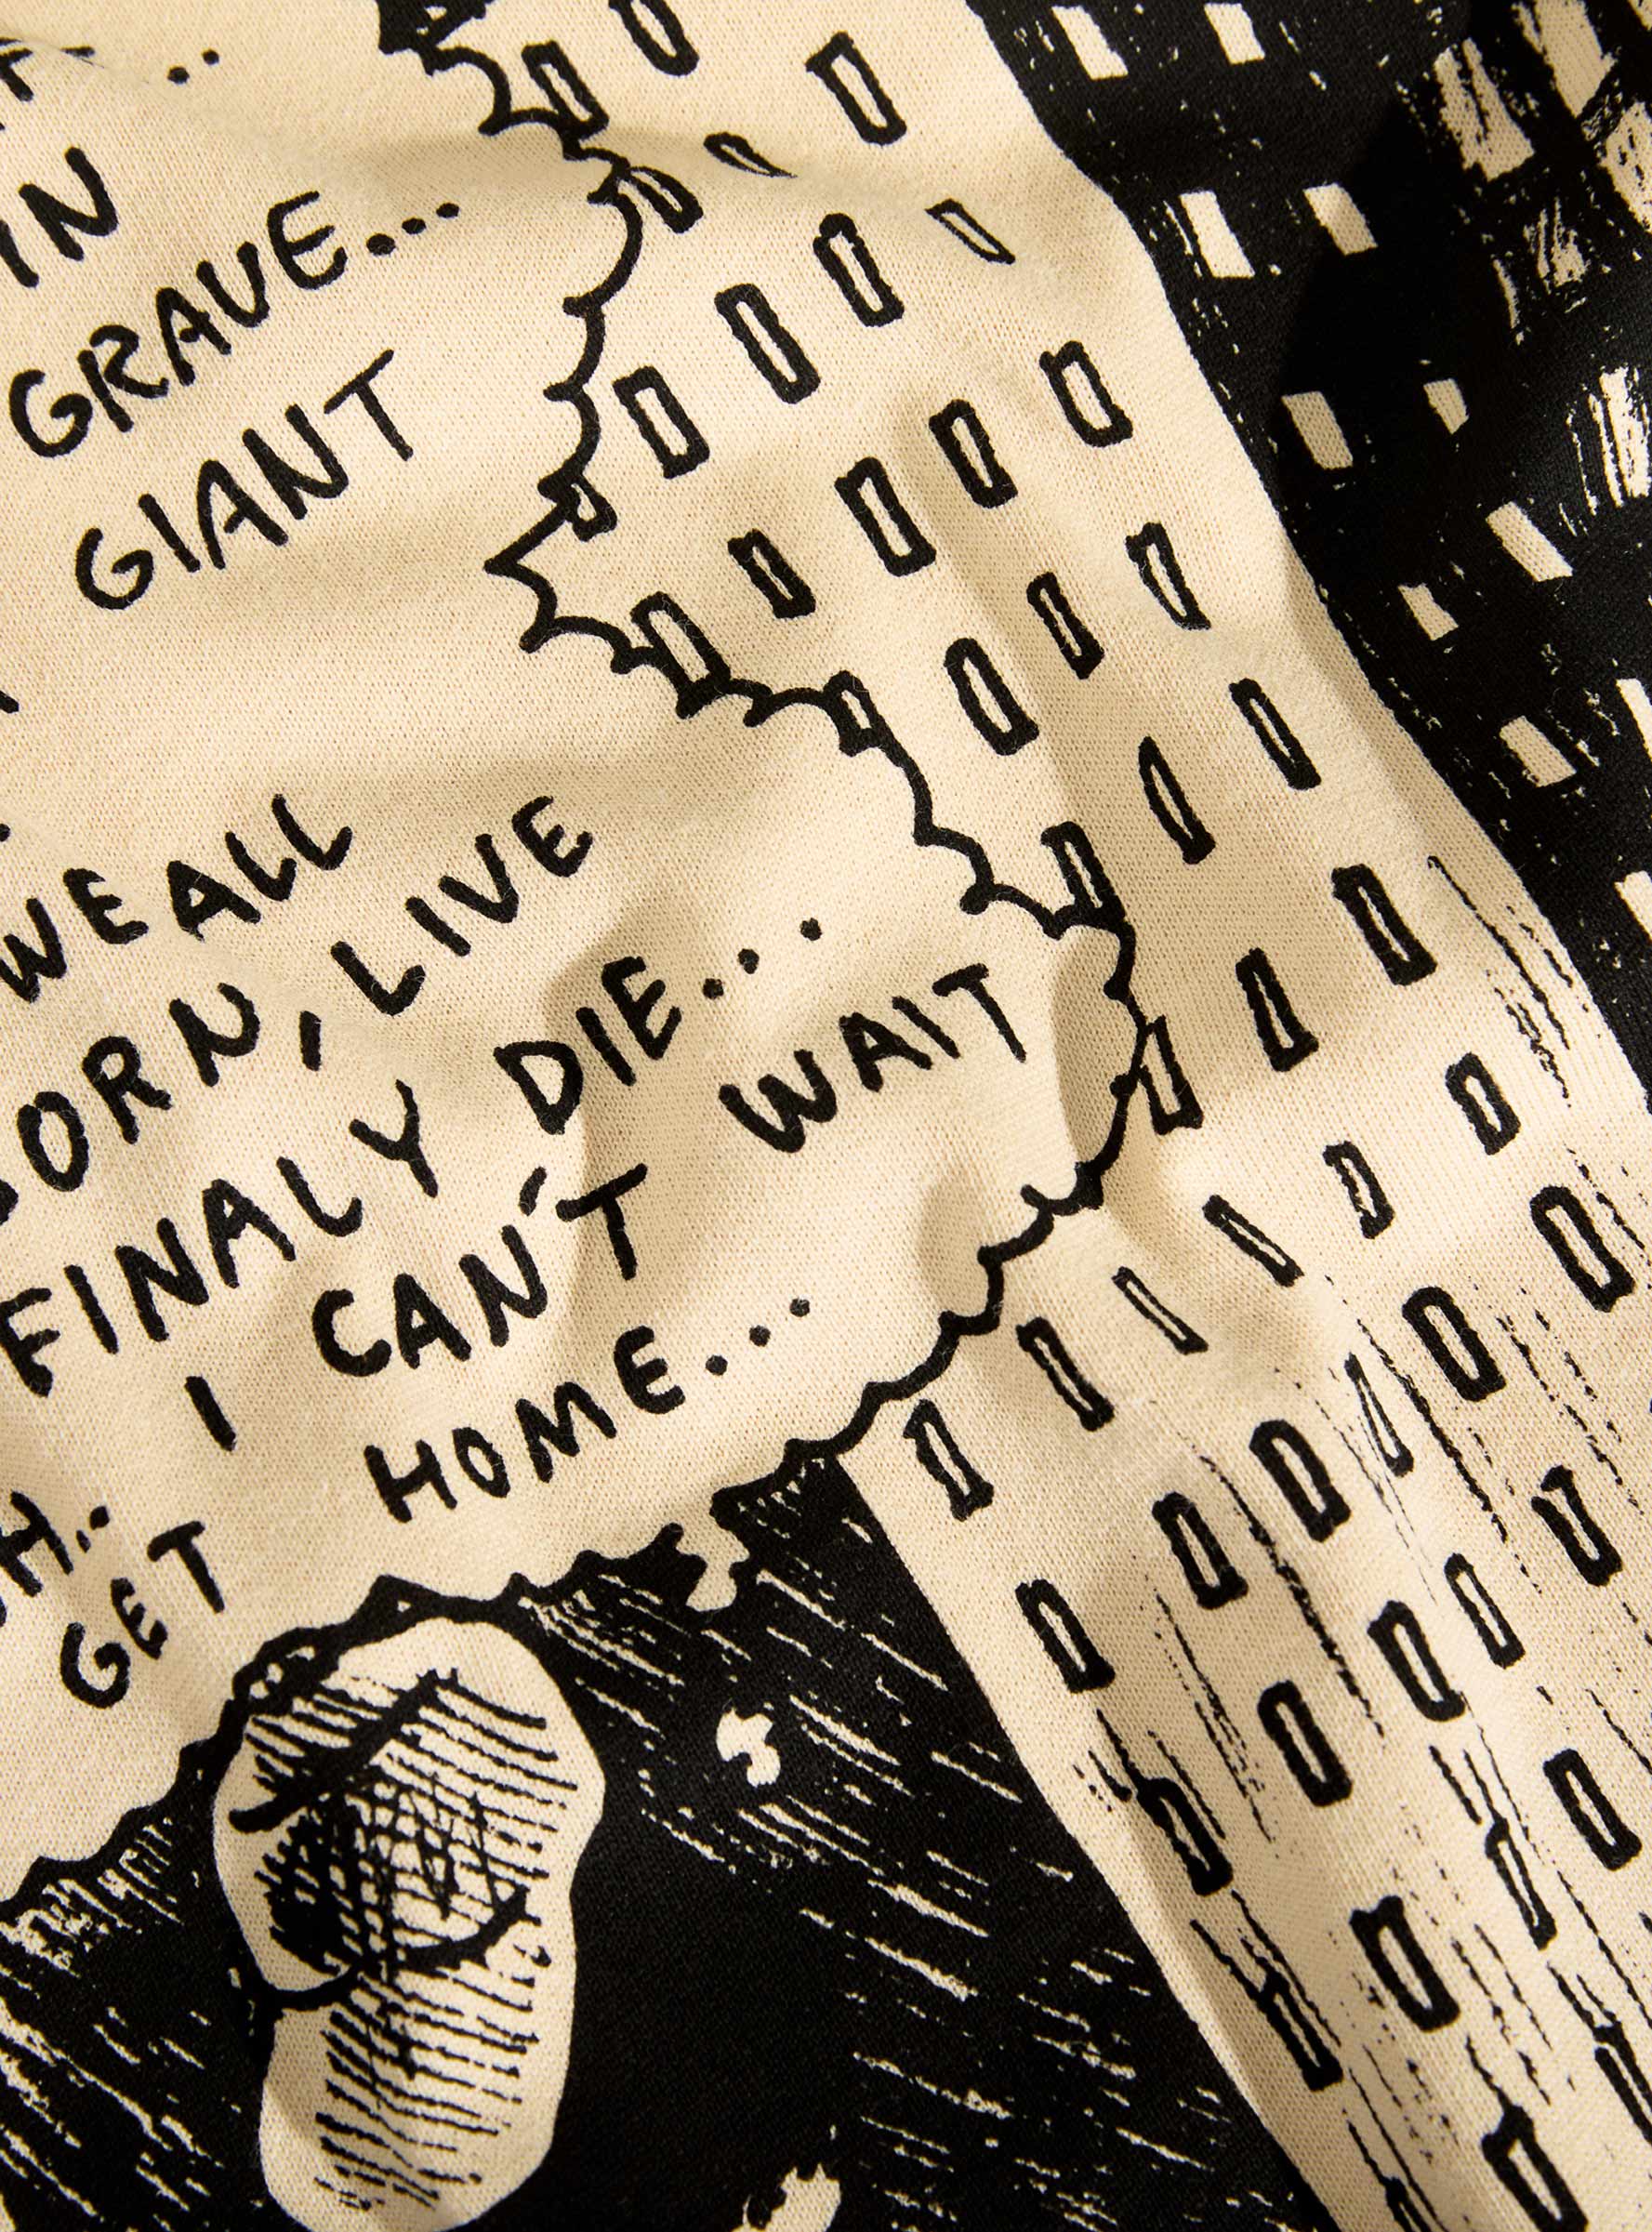 IN
GRAVE...
GIANT
WE ALL
BORN, LIVE
FINALY DIE...
H.. I CAN´T WAIT
GET HOME...